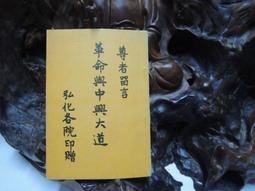 尊者留言
革命與中興大道
弘化各院印贈